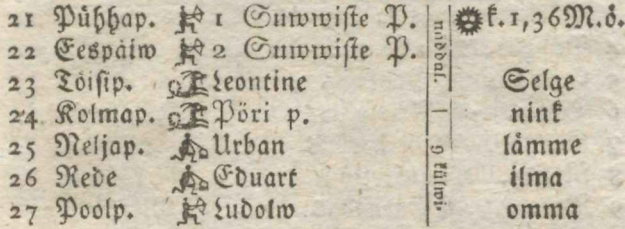 21 Pühhap. 1 Suwwiste P. k. 1,36M.ö.
22 Eespäiw 2 Suwwiste P.
23 Töisip. Leontine Selge
24 Kolmap. Pöri p. nink
25 Neljap. Urban lämme
26 Rede Eduart ilma
27 Poolp. Ludolw omma